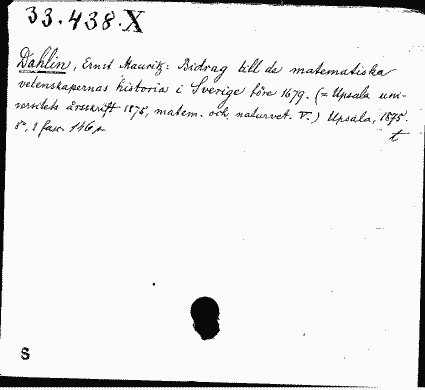 33.438.X
Dahlin, Ernst Mauritz: Bidrag till de matematiska
vetenskapernas historia i Sverige före 1679. (= Upsala uni-
versitets årsskrift 1875, matem. och naturvet. V.) Upsala, 1875.
8°, 2 facs. 146 s
t
S